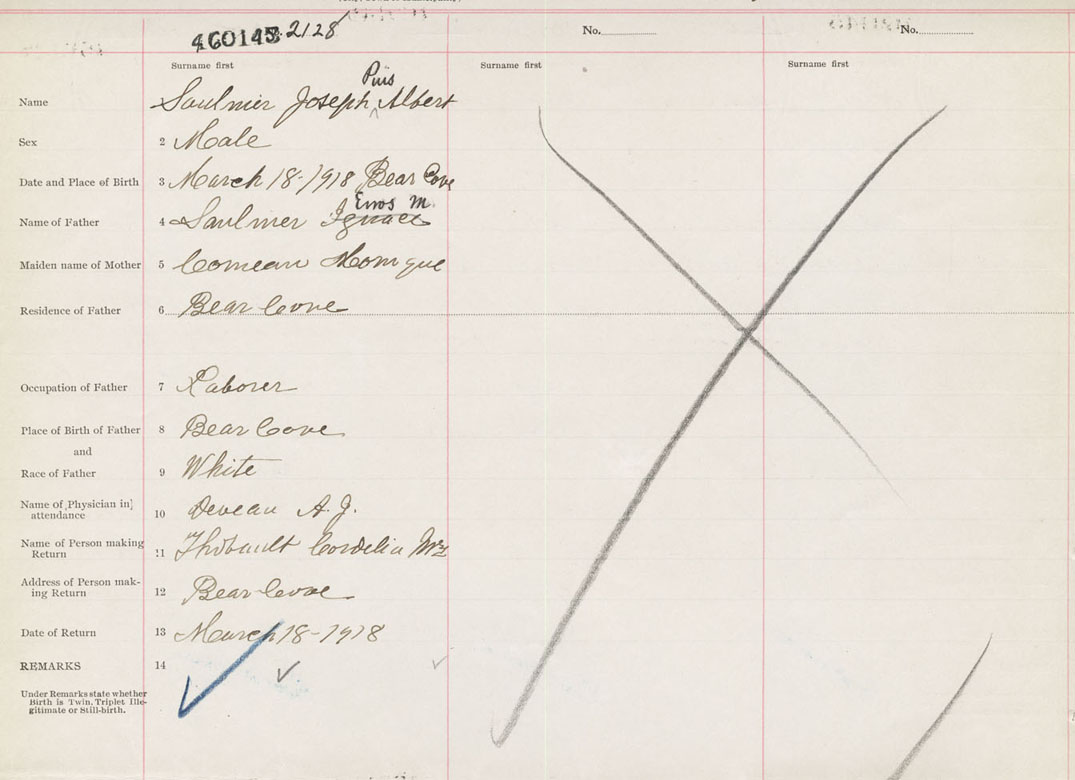 460145 2128
No.
No.
Surname first
Surname first
Surname first
Pius
Name 1 Saulnier Joseph ^ Albert
Sex 2 Male
Date and Place of Birth 3 March 18-1918 Bear Cove
Enos M.
Name of Father 4 Saulnier Ignace
Maiden name of Mother 5 Comeau Monique
Residence of Father 6 Bear Cove
Occupation of Father 7 Laborer
Place of Birth of Father 8 Bear Cove
and
Race of Father 9 White
Name of Physician in
attendance 10 Deveau A. J.
Name of Person making
Return 11 Thibault Cordelia Mrs
Address of Person mak-
ing Return 12 Bear Cove
Date of Return 13 March 18-1918
REMARKS 14
Under Remarks state whether
Birth is Twin, Triplet Ille-
gitimate or Still-birth.